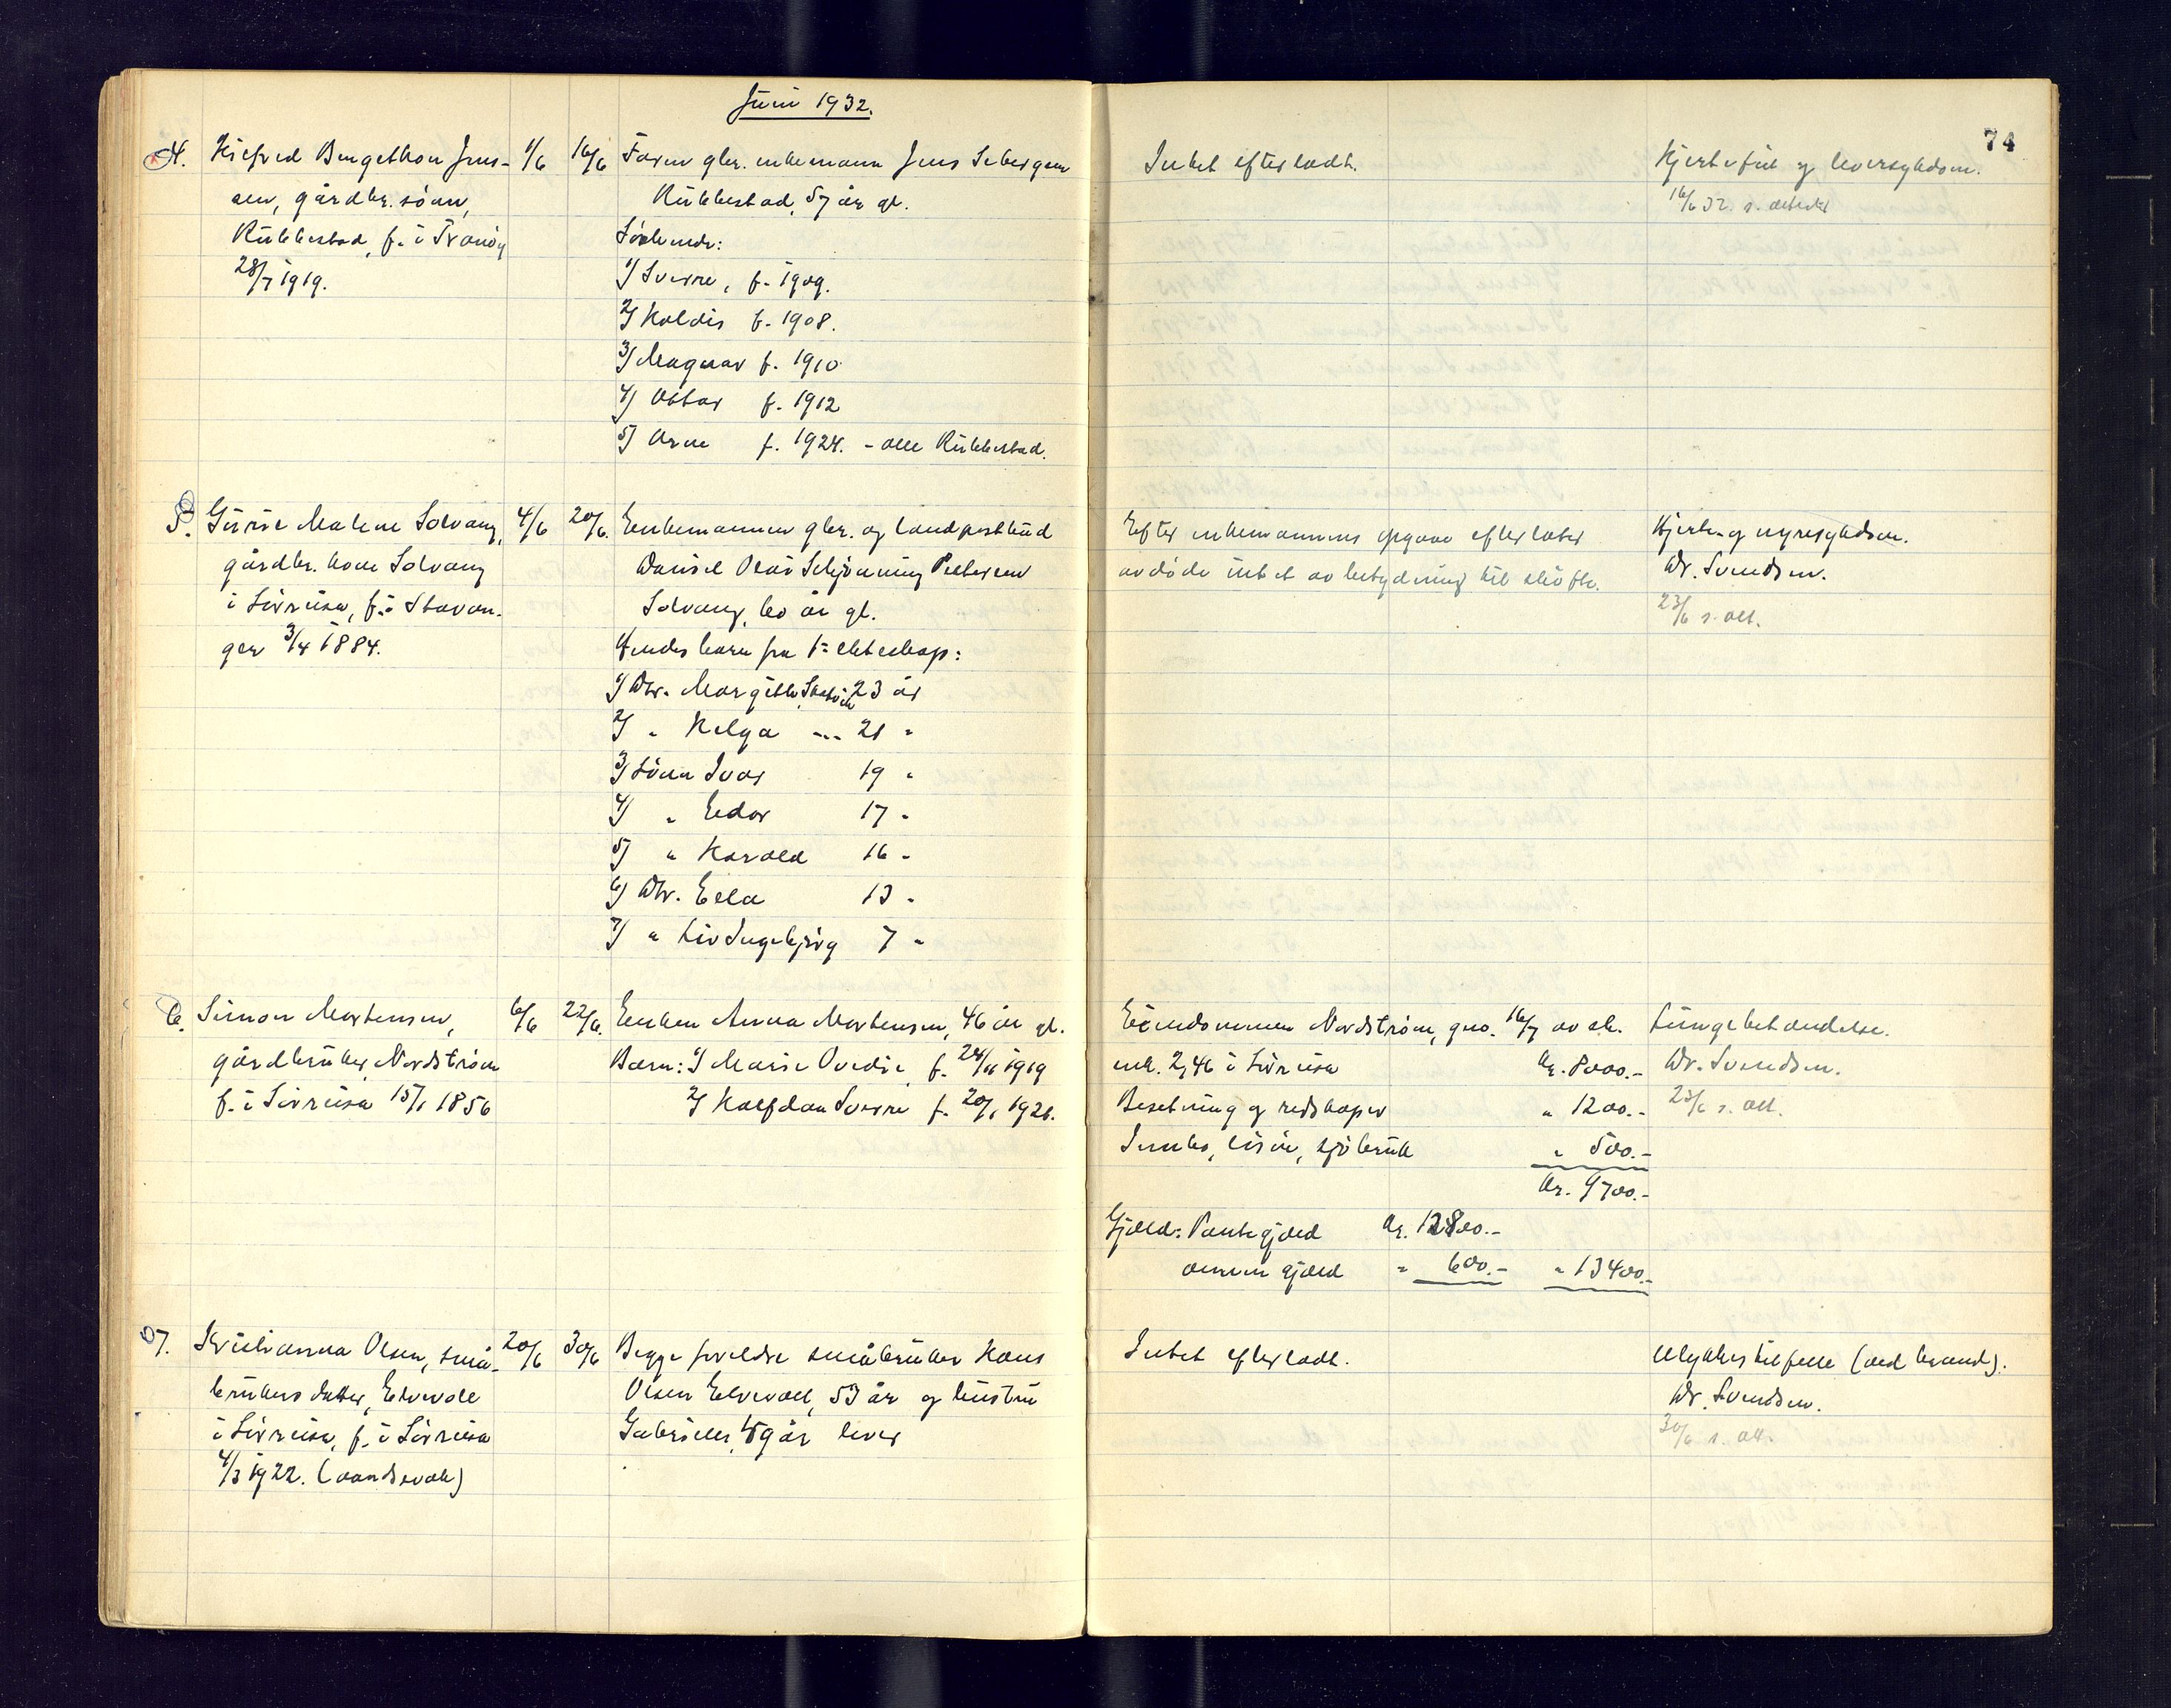 Juni 1932.
74
4. Hilfred Bengethon Jens-
sen, gårdbr. sønn,
Rubbestad, f. i Tranøy
28/7 1919.
1/6
16/6
Faren gbr. enkemann Jens Sebergsen
Rubbestad, 57 år gl.
Søskende:
1/ Sverre, f. 1909.
2/ Haldis f. 1908.
3/ Magnar f. 1910
4/ Ottar f. 1912
5/ Arne f. 1924. - alle Rubbestad.
Intet efterladt.
Hjertefeil og leversykdom.
16/6 32. s.
5. Gurie Malene Solvang,
gårdbr. kone Solvang
i Sørreisa, f. i Stavan-
ger 3/4 1884.
4/6
20/6.
Enkemannen gbr. og landpostbud
Daniel Olai Schjønning Pettersen
Solvang, 60 år gl.
Hendes barn fra 1= ekteskap:
1/ Dtr. Margithe 23 år
2/ " Helga --- 21 "
3/ Sønn Ivar 19 "
4/ " Edor 17 "
5/ " Harald 16 "
6/ Dtr. Ella 13 "
7/ " Liv Ingebjørg 7 "
Efter enkemannens opgave efterlater
avdøde intet av betydning til skifte.
Hjerte- og nyresykdom.
Dr. Svendsen.
23/6 s. att.
6. Simon Mortensen,
gårdbruker, Nordstrøm
f. i Sørreisa 15/1 1856
6/6
22/6.
Enken Anna Mortensen, 46 år gl.
Barn: 1/ Marie Ovedie, f. 24/11 1919
2/ Halfdan Sverre f. 20/1 1921.
Eiendommen Nordstrøm, gno. 16/7 av sk.
mk. 2,46 i Sørreisa kr. 8000.-
Besetning og redskaper " 1200.-
Innbo, løsøre, sjøbruk " 500.-
kr. 9700.-
Gjæld: Pantegjæld kr. 12800.-
annen gjæld " 600.- " 13400.-
Lungebetændelse.
Dr. Svendsen.
23/6 s. att.
7. Kristianna Olsen, små-
brukers datter, Elvevoll
i Sørreisa, f. i Sørreisa
4/3 1922. (aandssvak)
20/6
30/6
Begge foreldre småbruker Hans
Olsen Elvevoll, 53 år og hustru
Gabrielle, 49 år lever
Intet efterladt.
Ulykkestilfelle (ved brand).
Dr. Svendsen.
30/6 s. att.